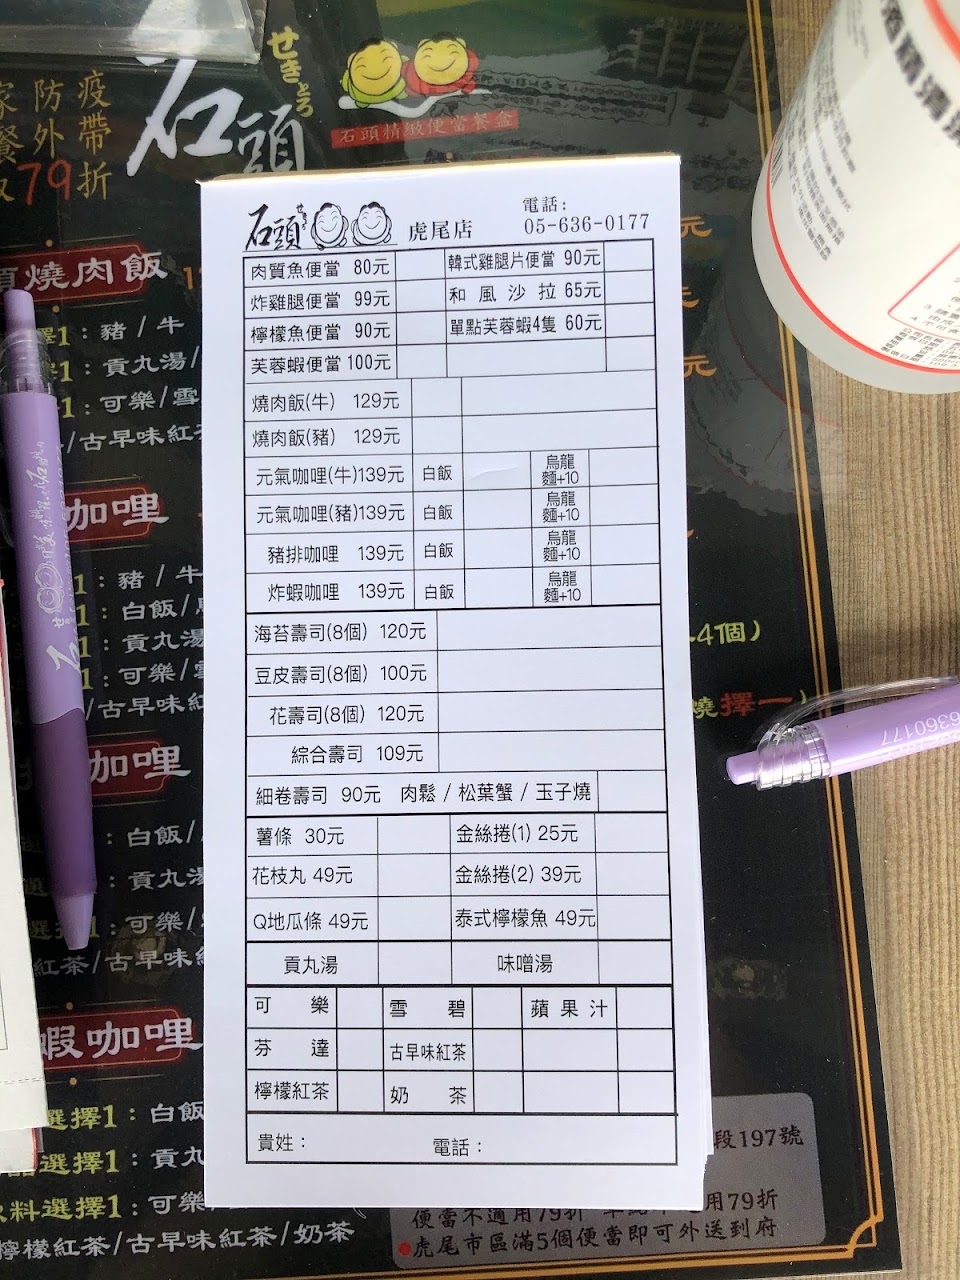 家防疫
餐外帶
取79折
石頭
せきとう
石頭精緻便當餐盒
石頭
虎尾店
電話:
05-636-0177
肉質魚便當 80元 韓式雞腿片便當 90元
炸雞腿便當 99元 和風沙拉 65元
檸檬魚便當 90元 單點芙蓉蝦4隻 60元
芙蓉蝦便當 100元
燒肉飯(牛) 129元
燒肉飯(豬) 129元
元氣咖哩(牛)139元 白飯 烏龍麵+10
元氣咖哩(豬)139元 白飯 烏龍麵+10
豬排咖哩 139元 白飯 烏龍麵+10
炸蝦咖哩 139元 白飯 烏龍麵+10
海苔壽司(8個) 120元
豆皮壽司(8個) 100元
花壽司(8個) 120元
綜合壽司 109元
細卷壽司 90元 肉鬆 / 松葉蟹 / 玉子燒
薯條 30元 金絲捲(1) 25元
花枝丸 49元 金絲捲(2) 39元
Q地瓜條 49元 泰式檸檬魚 49元
貢丸湯 味噌湯
可樂 雪碧 蘋果汁
芬達 古早味紅茶
檸檬紅茶 奶茶
貴姓： 電話：
燒肉飯
擇1：豬 / 牛
1：貢丸湯/
1：可樂/雪
/古早味紅茶
咖哩
：豬 / 牛
1：白飯/
1：貢丸湯
1：可樂/雪
/古早味紅茶
咖哩
：白飯/
選擇1：貢丸湯
選擇1：可樂/
紅茶/古早味
蝦咖哩
選擇1：白飯
選擇1：貢丸
飲料選擇1：可樂/
檸檬紅茶/古早味紅茶/奶茶
元
元
元
4個）
燒擇一）
6360177
段197號
用79折
便當不適用79折
虎尾市區滿5個便當即可外送到府
酒精清